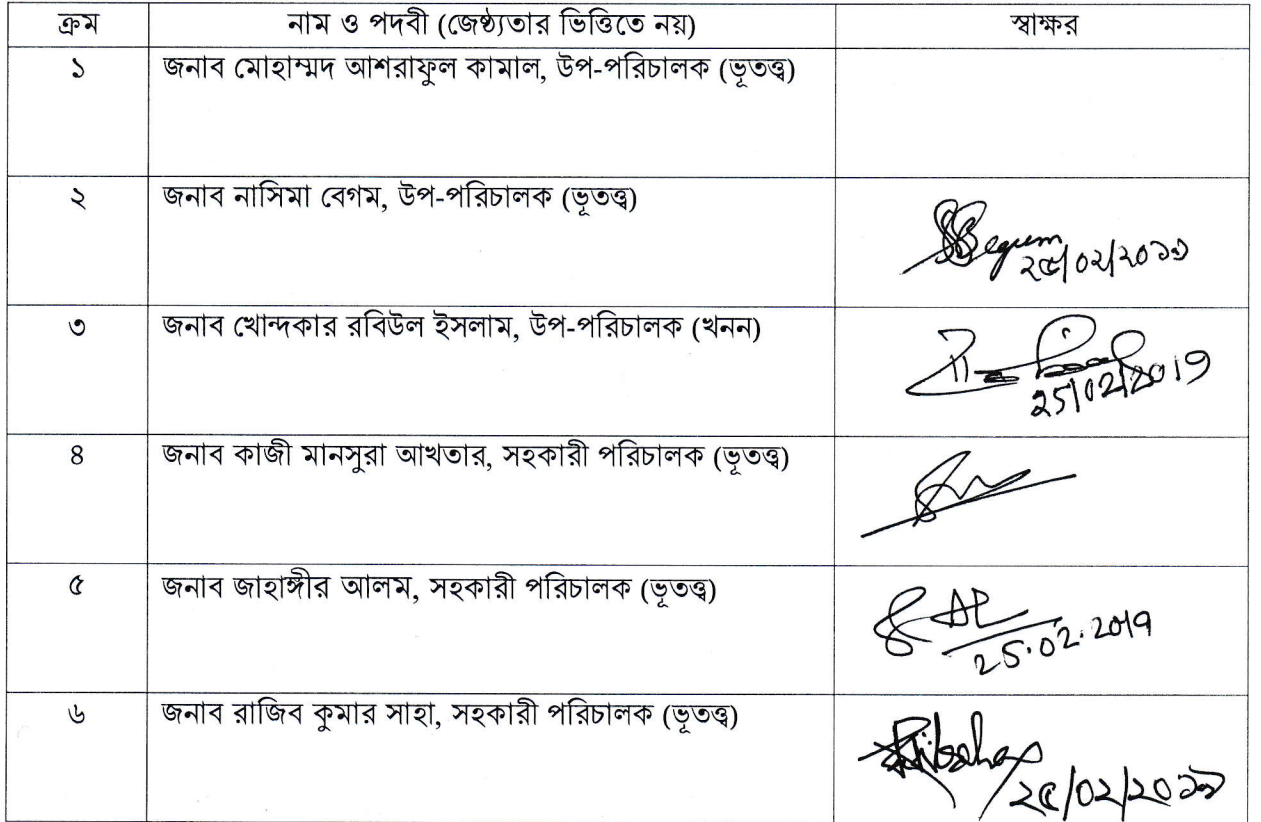 ক্রম নাম ও পদবী (জেষ্ঠ্যতার ভিত্তিতে নয়) স্বাক্ষর
১ জনাব মোহাম্মদ আশরাফুল কামাল, উপ-পরিচালক (ভূতত্ত্ব)
২ জনাব নাসিমা বেগম, উপ-পরিচালক (ভূতত্ত্ব)
Begum
২৫/০২/২০১৯
৩ জনাব খোন্দকার রবিউল ইসলাম, উপ-পরিচালক (খনন)
25/02/2019
৪ জনাব কাজী মানসুরা আখতার, সহকারী পরিচালক (ভূতত্ত্ব)
৫ জনাব জাহাঙ্গীর আলম, সহকারী পরিচালক (ভূতত্ত্ব)
25.02.2019
৬ জনাব রাজিব কুমার সাহা, সহকারী পরিচালক (ভূতত্ত্ব)
২৫/০২/২০১৯